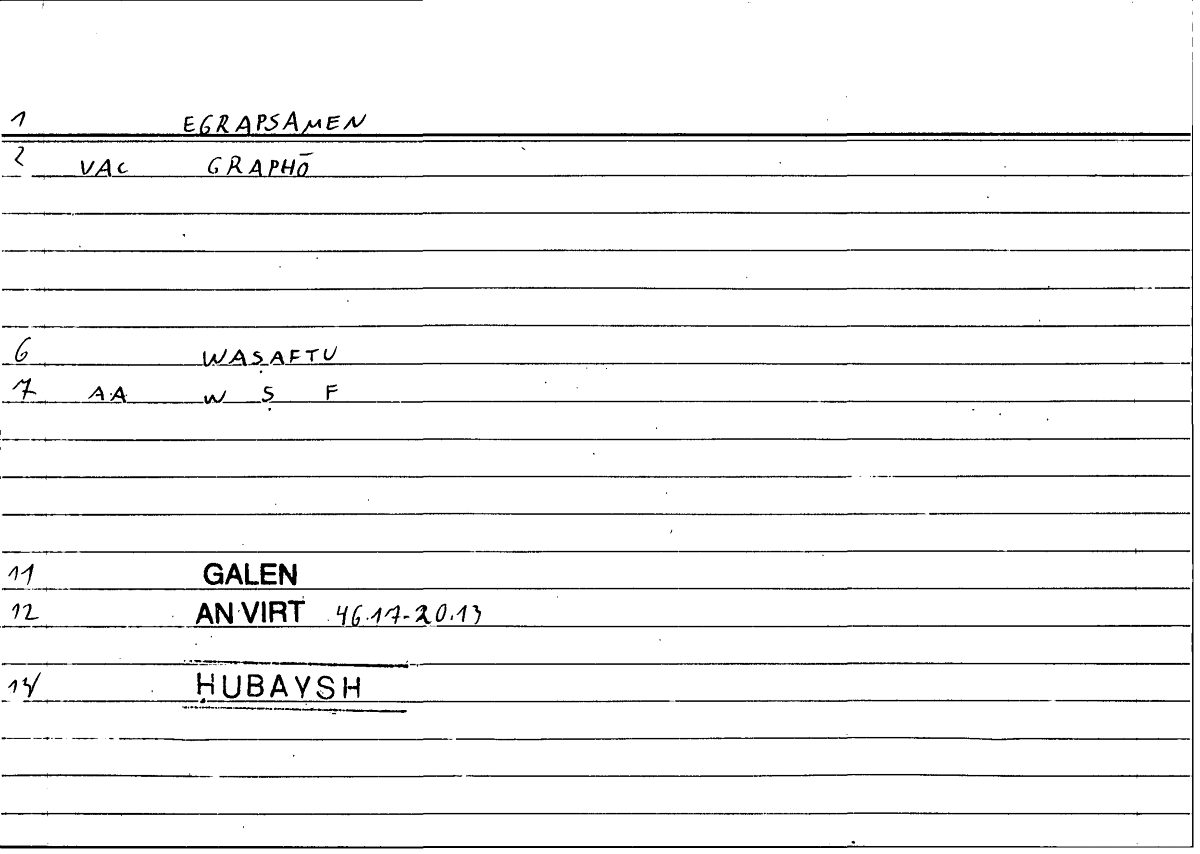 1 EGRAPSAMEN
2 VAC GRAPHŌ
6 WAṢAFTU
7 AA W Ṣ F
11 GALEN
12 AN VIRT 46.17-20.13
14 ḤUBAYSH